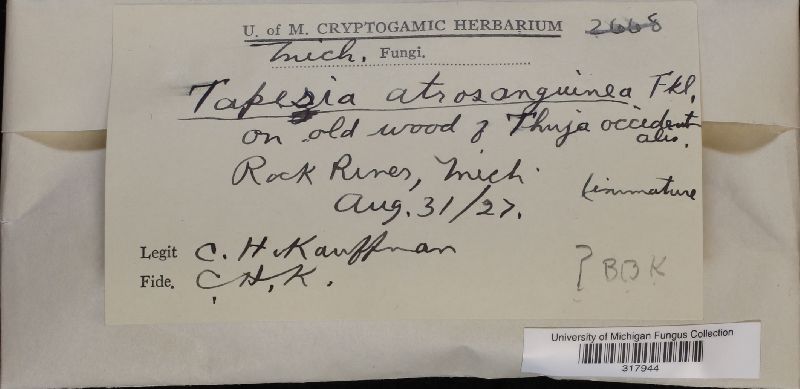 U. of M. CRYPTOGAMIC HERBARIUM 2668
Mich. Fungi.
Tapesia atrosanguinea Fkl.
on old wood of Thuja occident
alis.
Rock River, Mich.
(immature
Aug. 31/27.
Legit C. H. Kauffman
Fide. C. H. K.
? BOK
University of Michigan Fungus Collection
317944